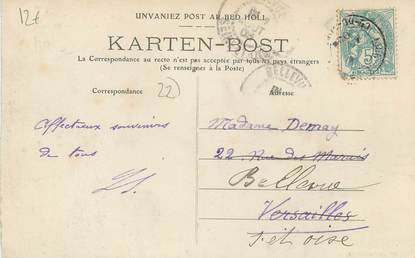 12€
UNVANIEZ POST AR BED HOLL
KARTEN-BOST
La Correspondance au recto n'est pas acceptée par tous les pays étrangers
(Se renseigner à la Poste)
BELLEVUE
Correspondance
22
Adresse
Affectueux souvenirs
de tous
Madame Demay
22 Rue des Marais
Bellevue
Versailles
S. et Oise